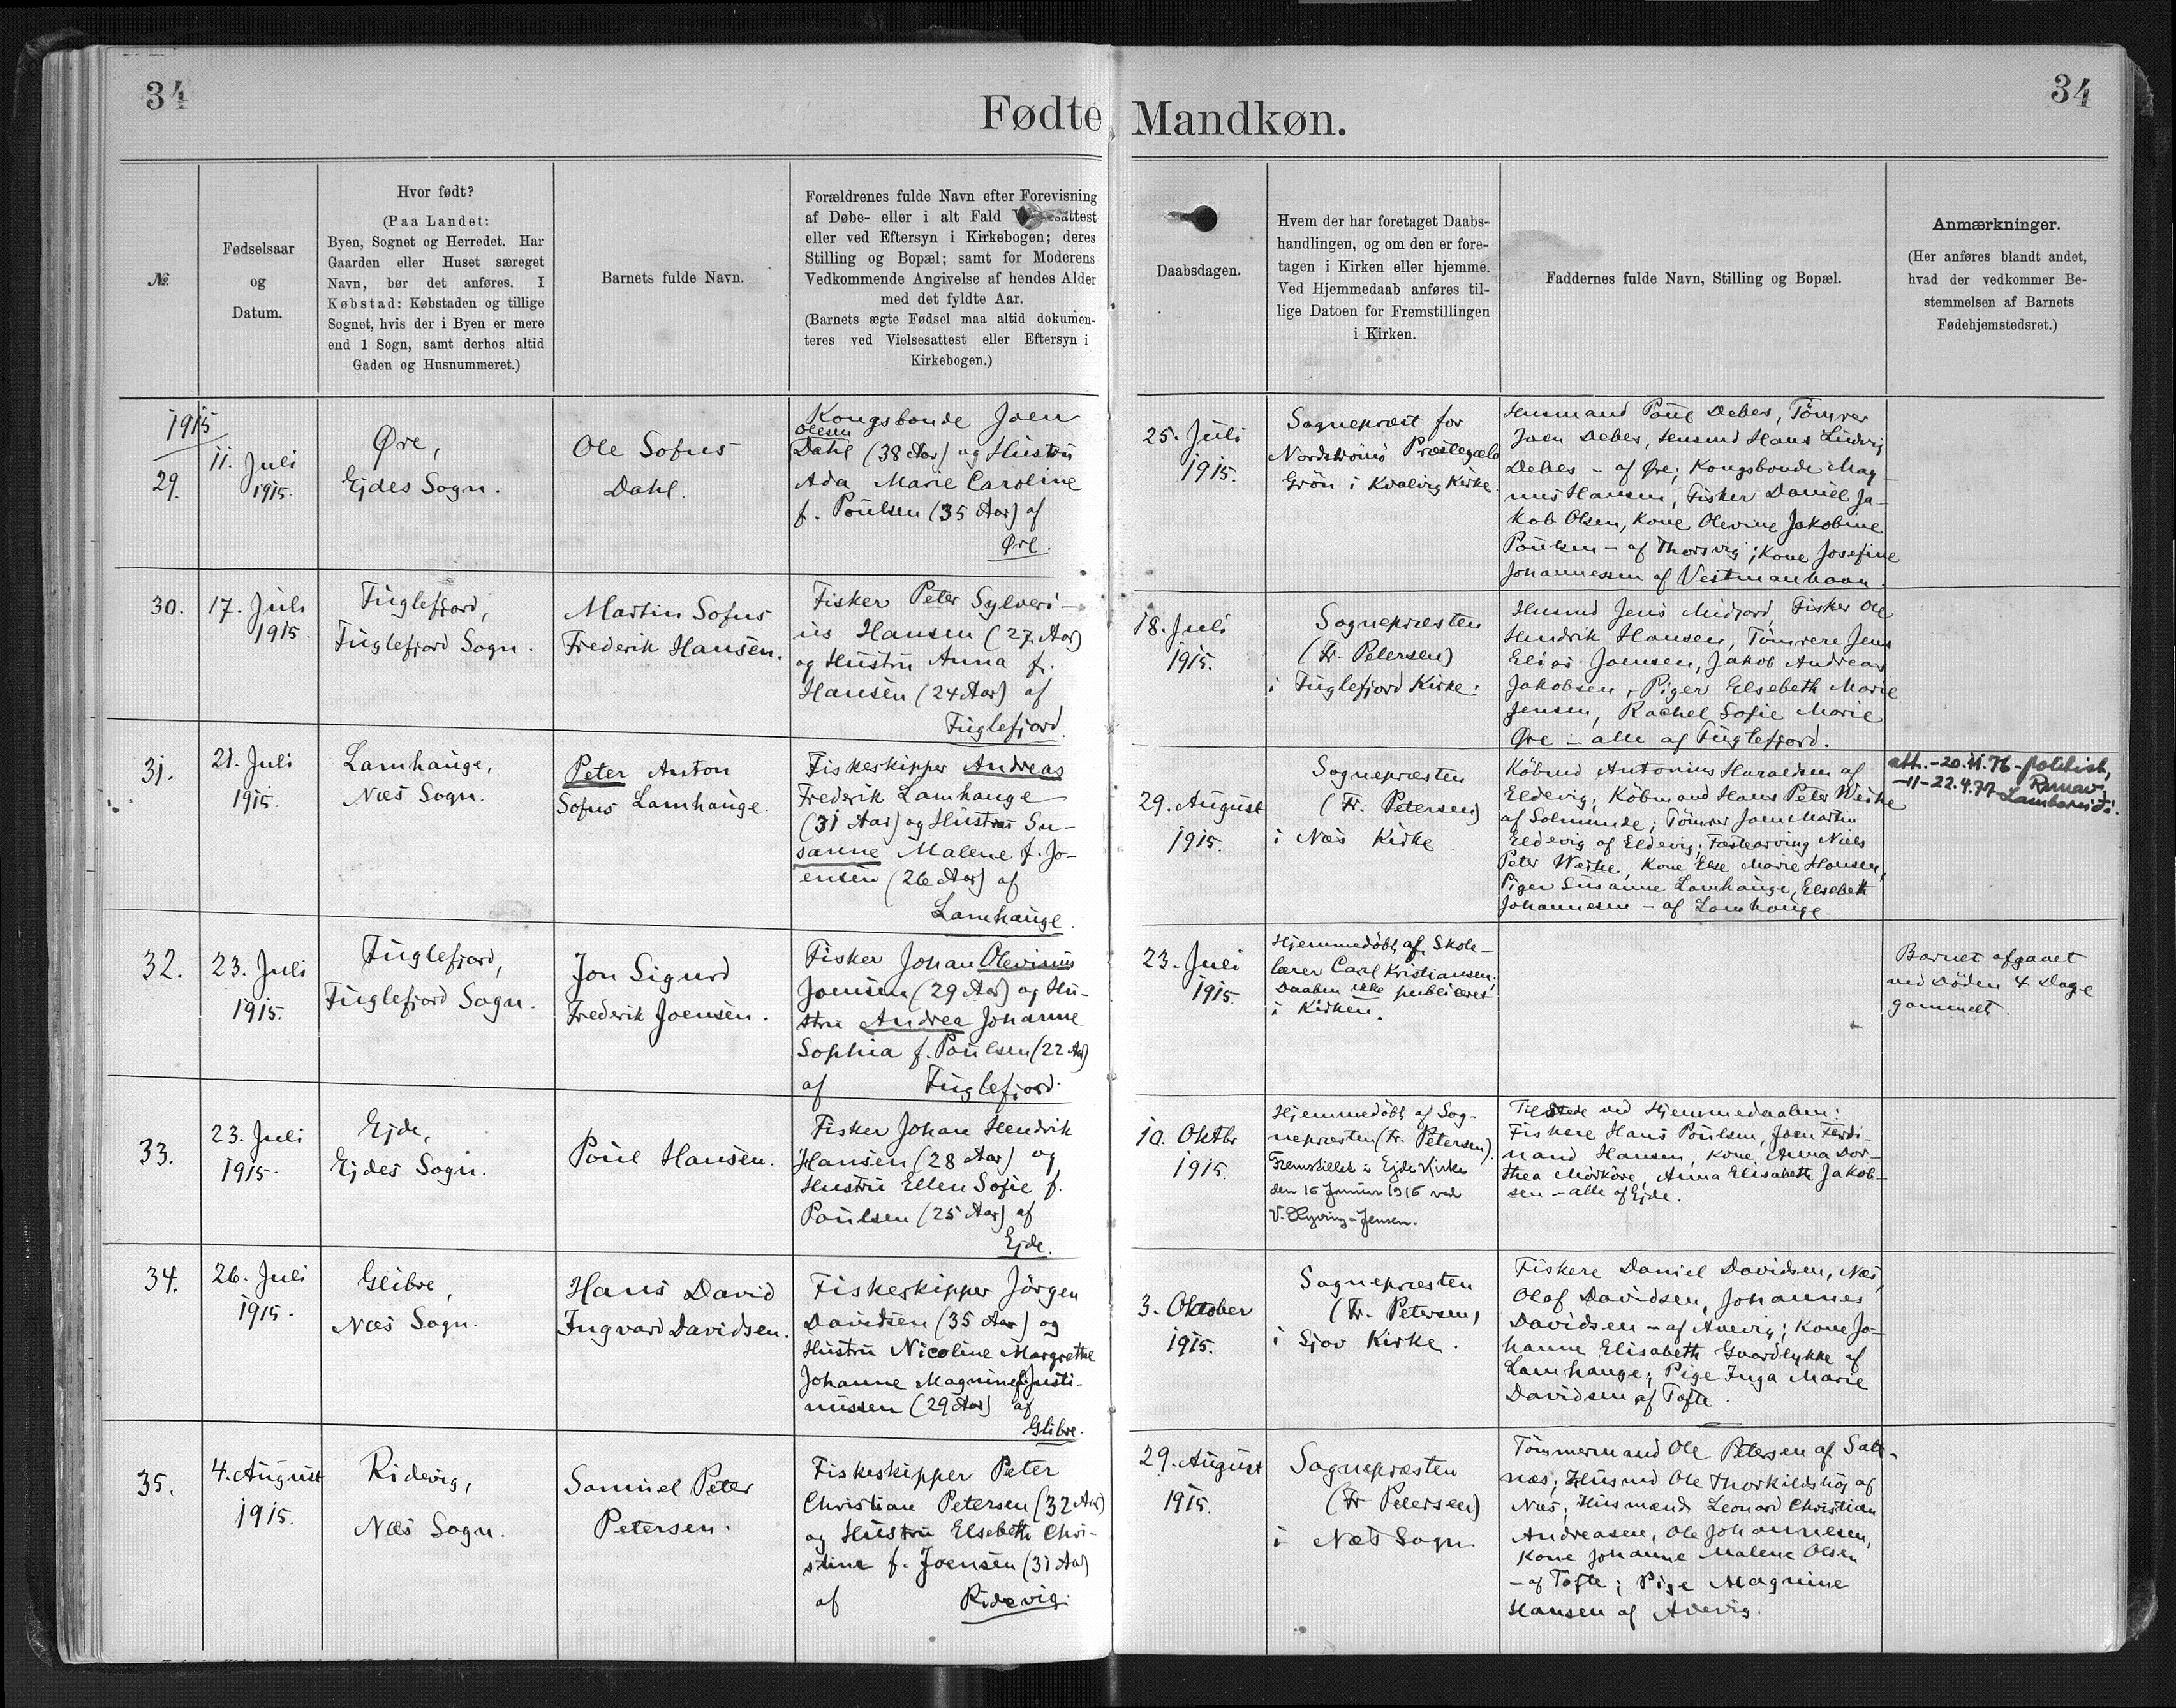 34
Fødte Mandkøn.
34
№.
Fødselsaar
og
Datum.
Hvor født?
(Paa Landet:
Byen, Sognet og Herredet. Har
Gaarden eller Huset særeget
Navn, bør det anføres. I
Købstad: Købstaden og tillige
Sognet, hvis der i Byen er mere
end 1 Sogn, samt derhos altid
Gaden og Husnummeret.)
Barnets fulde Navn.
Forældrenes fulde Navn efter Forevisning
af Døbe- eller i alt Fald
eller ved Eftersyn i Kirkebogen; deres
Stilling og Bopæl; samt for Moderens
Vedkommende Angivelse af hendes Alder
med det fyldte Aar.
(Barnets ægte Fødsel maa altid dokumen-
teres ved Vielsesattest eller Eftersyn i
Kirkebogen.)
Daabsdagen.
Hvem der har foretaget Daabs-
handlingen, og om den er fore-
tagen i Kirken eller hjemme.
Ved Hjemmedaab anføres til-
lige Datoen for Fremstillingen
i Kirken.
Faddernes fulde Navn, Stilling og Bopæl.
Anmærkninger.
(Her anføres blandt andet,
hvad der vedkommer Be-
stemmelsen af Barnets
Fødehjemstedsret.)
1915
29.
11. Juli
1915.
Øre,
Ejdes Sogn.
Ole Sofus
Dahl.
Kongsbonde Joen
Olesen
Dahl (38 Aar) og Hustru
Ada Marie Caroline
f. Poulsen (35 Aar) af
Øre.
25. Juli
1915.
Sognepræst for
Nordstrømø Præstegæld
Grön i Kvalvig Kirke.
Husmand Poul Debes, Tömrer
Joen Debes, Husmd Hans Ludvig
Debes - af Øre; Kongsbonde Mag-
nus Hansen, Fisker Daniel Ja-
kob Olsen, Kone Olevine Jakobine
Poulsen - af Thorsvig; Kone Josefine
Johannessen af Vestmanhavn.
30.
17. Juli
1915.
Fuglefjord,
Fuglefjord Sogn.
Martin Sofus
Frederik Hansen.
Fisker Peter Sylveri-
us Hansen (27 Aar)
og Hustru Anna f.
Hansen (24 Aar) af
Fuglefjord.
18. Juli
1915.
Sognepræsten
(Fr. Petersen)
i Fuglefjord Kirke.
Husmd Jens Midjord, Fisker Ole
Hendrik Hansen, Tömrere Jens
Elias Joensen, Jakob Andreas
Jakobsen, Piger Elsebeth Marie
Jensen, Rachel Sofie Marie
Øre - alle af Fuglefjord.
31.
21. Juli
1915.
Lamhauge,
Næs Sogn.
Peter Anton
Sofus Lamhauge.
Fiskeskipper Andreas
Frederik Lamhauge
(31 Aar) og Hustru Su-
sanne Malene f. Jo-
ensen (26 Aar) af
Lamhauge.
29. August
1915.
Sognepræsten
(Fr. Petersen)
i Næs Kirke.
Købmd Antonius Haraldsen af
Eldevig; Købmand Hans Peter Weihe
af Solmunde; Tömrer Joen Martin
Eldevig af Eldevig; Fæstearving Niels
Peter Weihe, Kone Else Marie Hansen,
Piger Susanne Lamhauge, Elsebeth
Johannesen - af Lamhauge.
att. -20.11.76 -politist,
-11-22.4.77 Runavi,
Lambareidi.
32.
23. Juli
1915.
Fuglefjord,
Fuglefjord Sogn.
Jon Sigurd
Frederik Joensen.
Fisker Johan Olevinus
Joensen (29 Aar) og Hu-
stru Andrea Johanne
Sophia f. Poulsen (22 Aar)
af Fuglefjord.
23. Juli
1915.
Hjemmedöbt af Skole-
lærer Carl Kristiansen;
Daaben ikke publiceret
i Kirken.
Barnet afgaaet
ved Döden 4 Dage
gammelt.
33.
23. Juli
1915.
Ejde,
Ejdes Sogn.
Poul Hansen.
Fisker Johan Hendrik
Hansen (28 Aar) og
Hustru Ellen Sofie f.
Poulsen (25 Aar) af
Ejde.
10. Oktbr
1915.
Hjemmedöbt af Sog-
nepræsten (Fr. Petersen).
Fremstillet i Ejde Kirke
den 16 Januar 1916 ved
V. Ryving-Jensen.
Til Stede ved Hjemmedaaben:
Fiskere Hans Poulsen, Joen Ferdi-
nand Hansen, Kone Anna Dor-
thea Mörköre, Anna Elisabeth Jakob-
sen - alle af Ejde.
34.
26. Juli
1915.
Glibre,
Næs Sogn.
Hans David
Ingvard Davidsen.
Fiskeskipper Jörgen
Davidsen (35 Aar) og
Hustru Nicoline Margrethe
Johanne Magnine f. Justi-
nussen (29 Aar) af
Glibre.
3. Oktober
1915.
Sognepræsten
(Fr. Petersen)
i Sjov Kirke.
Fiskere Daniel Davidsen, Næs,
Olaf Davidsen, Johannes
Davidsen - af Avevig; Kone Jo-
hanne Elisabeth Gaardlykke af
Lamhauge; Pige Inga Marie
Davidsen af Tofte.
35.
4. August
1915.
Ridevig,
Næs Sogn.
Samuel Peter
Petersen.
Fiskeskipper Peter
Christian Petersen (32 Aar)
og Hustru Elsebeth Chri-
stine f. Joensen (31 Aar)
af Ridevig.
29. August
1915.
Sognepræsten
(Fr Petersen)
i Næs Sogn
Tömmermand Ole Petersen af Salt-
næs; Husmd Ole Thorkildshöj af
Næs; Husmænd Leonard Christian
Andreasen, Ole Johannesen,
Kone Johanne Malene Olsen
- af Tofte; Pige Magnine
Hansen af Avevig.